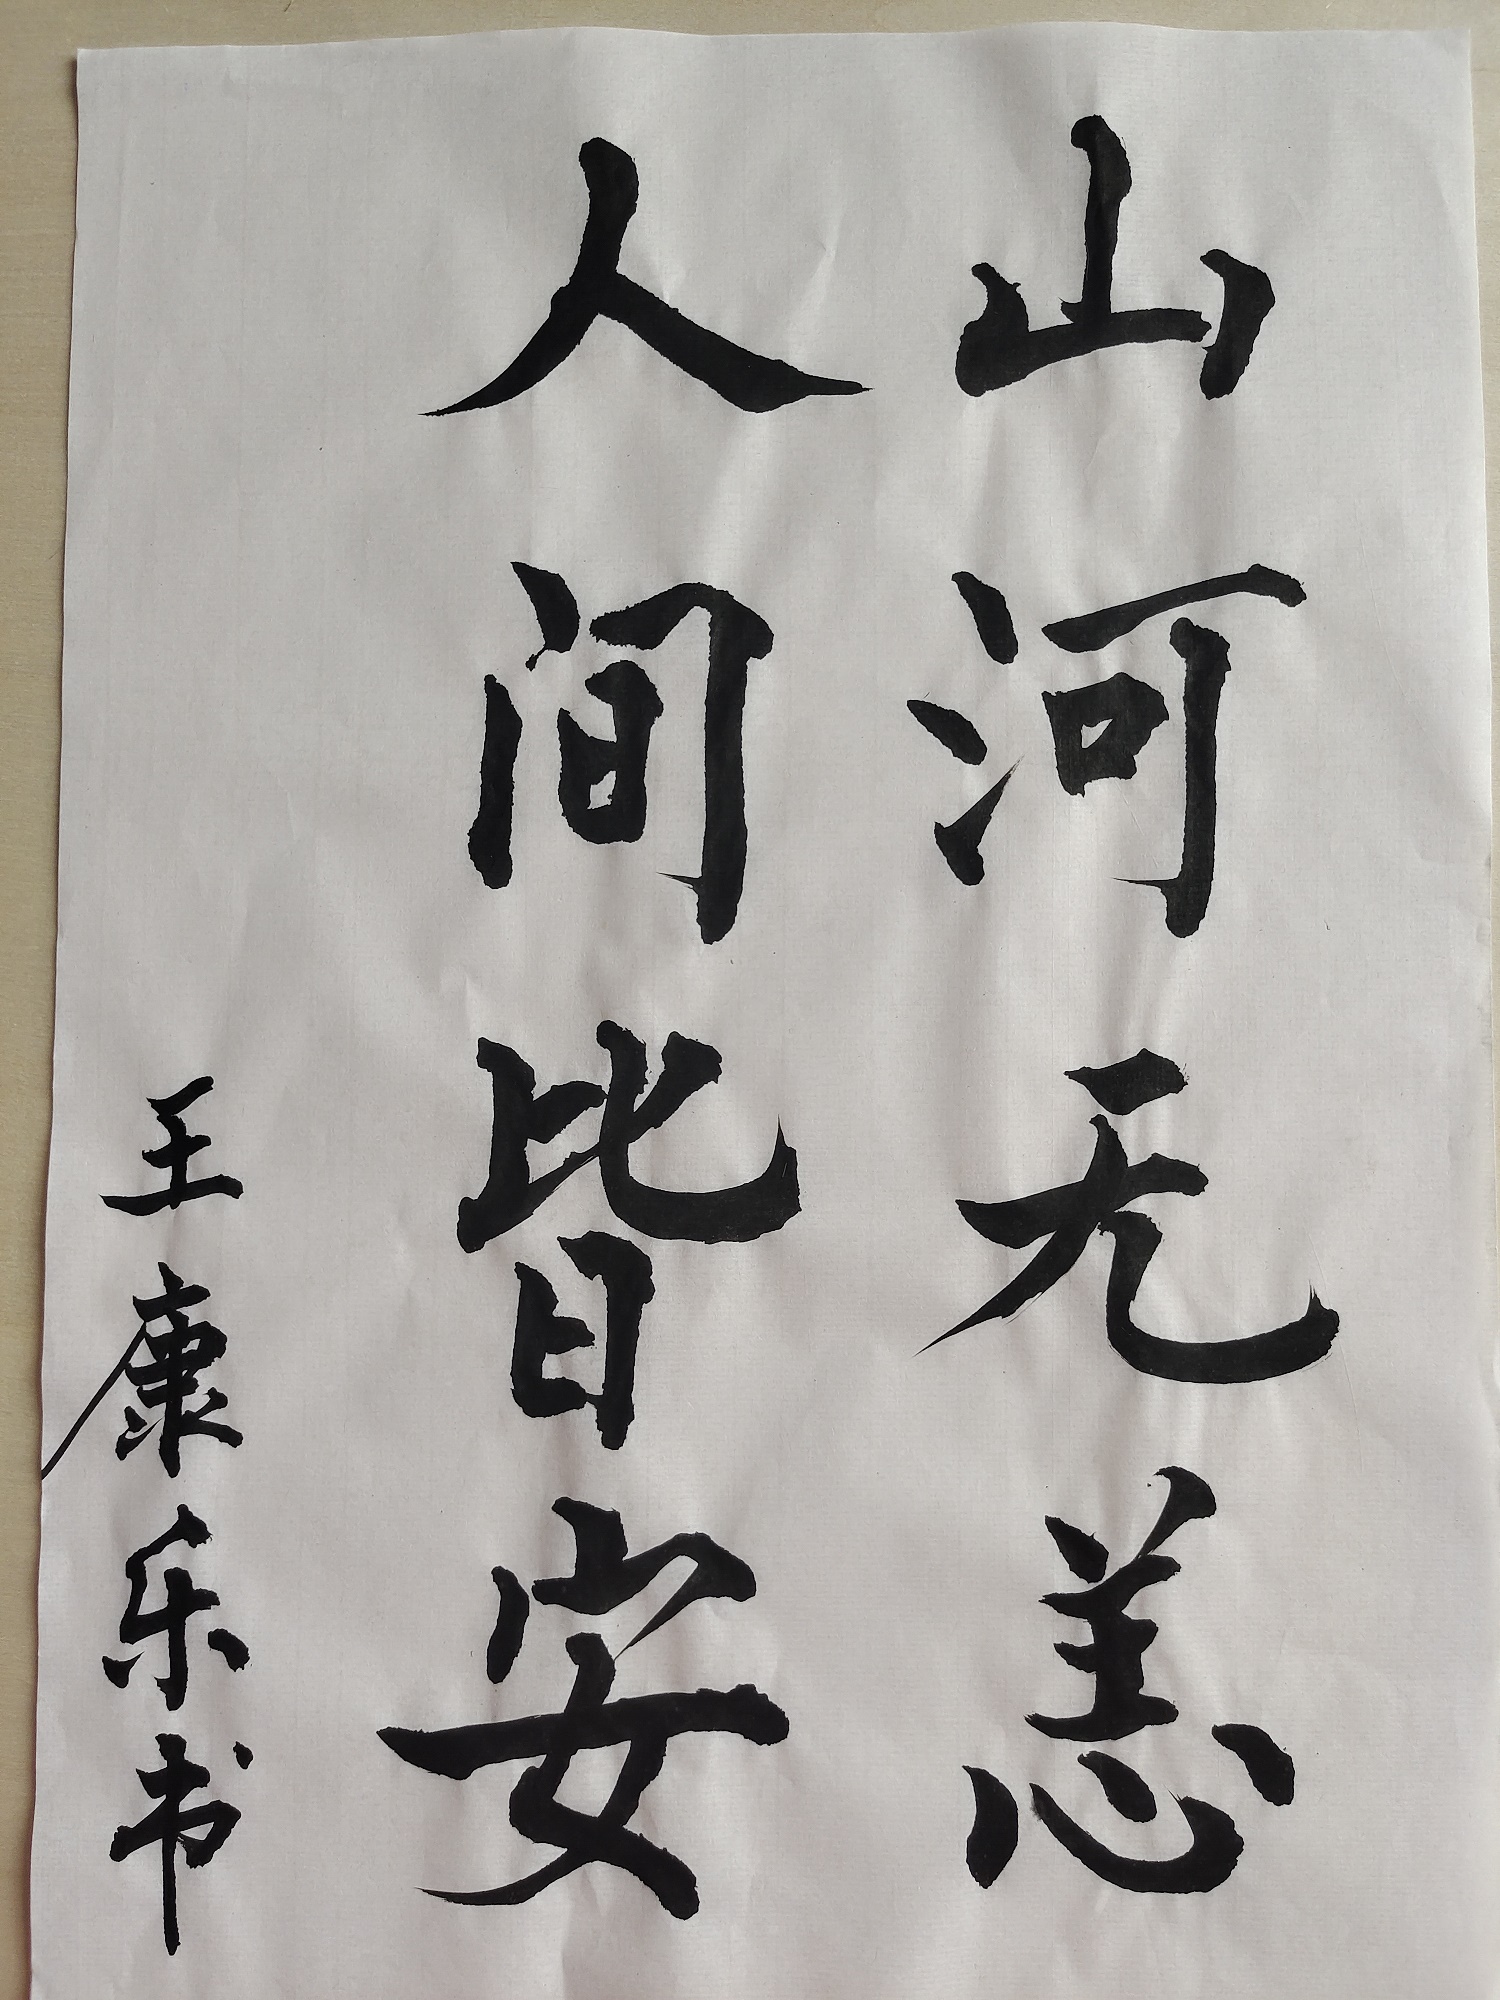 山河无恙
人间皆安
王康乐书